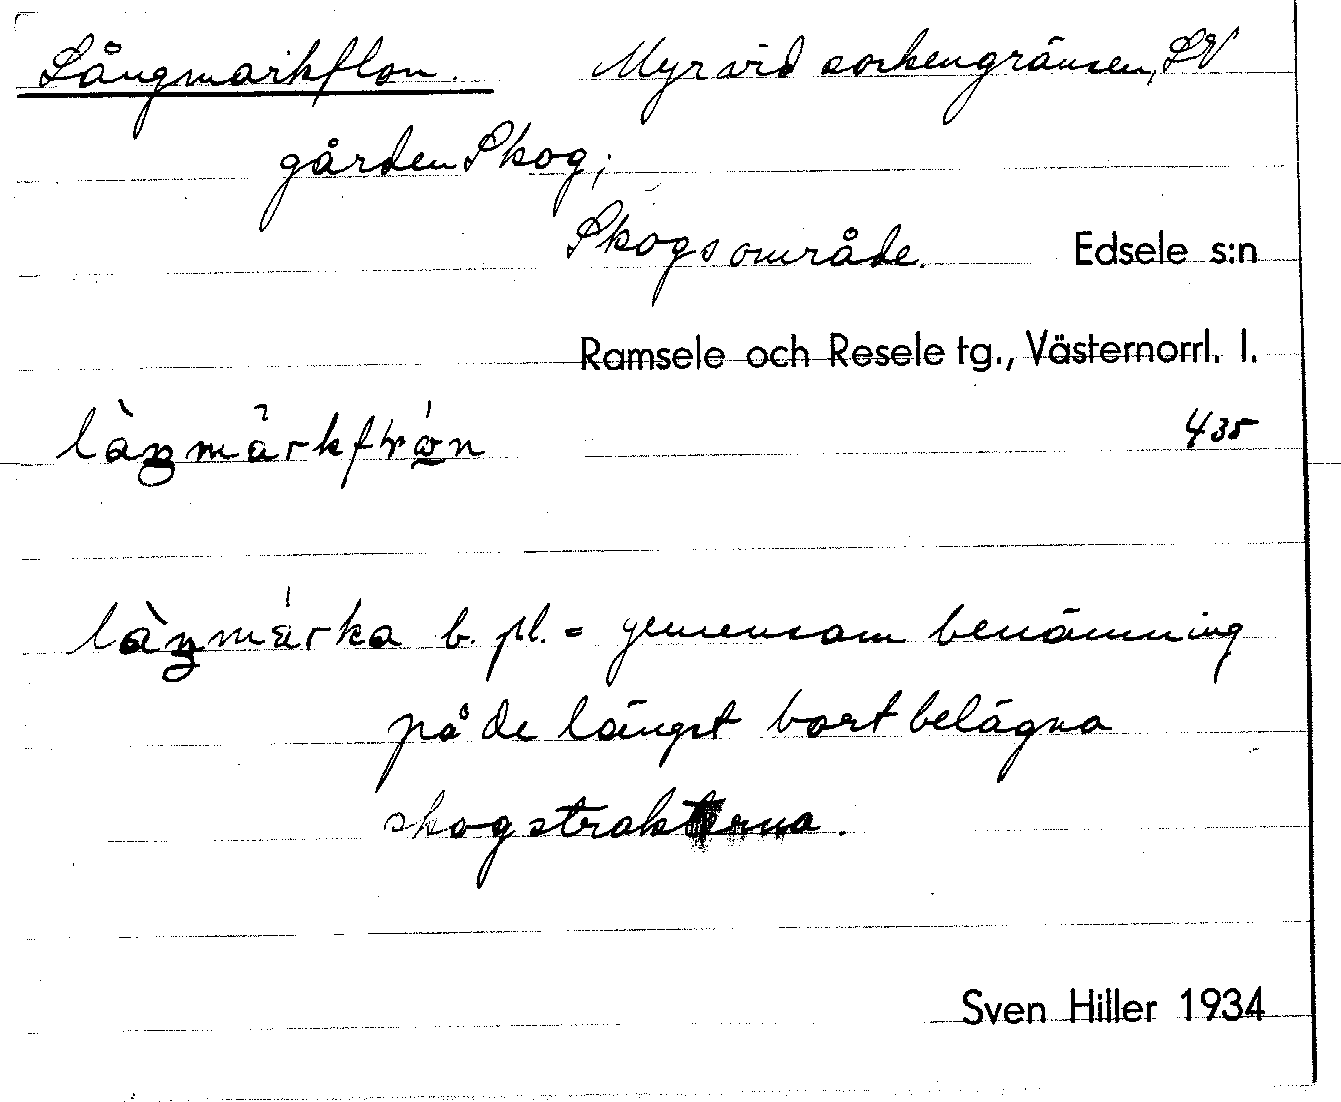 Långmarkflon. Myr vid sockengränsen, SV
gården Skog;
Skogsområde. Edsele s:n
Ramsele och Resele tg., Västernorrl. l.
435
b. pl. = gemensam benämning
på de längst bort belägna
skogstrakterna.
Sven Hiller 1934